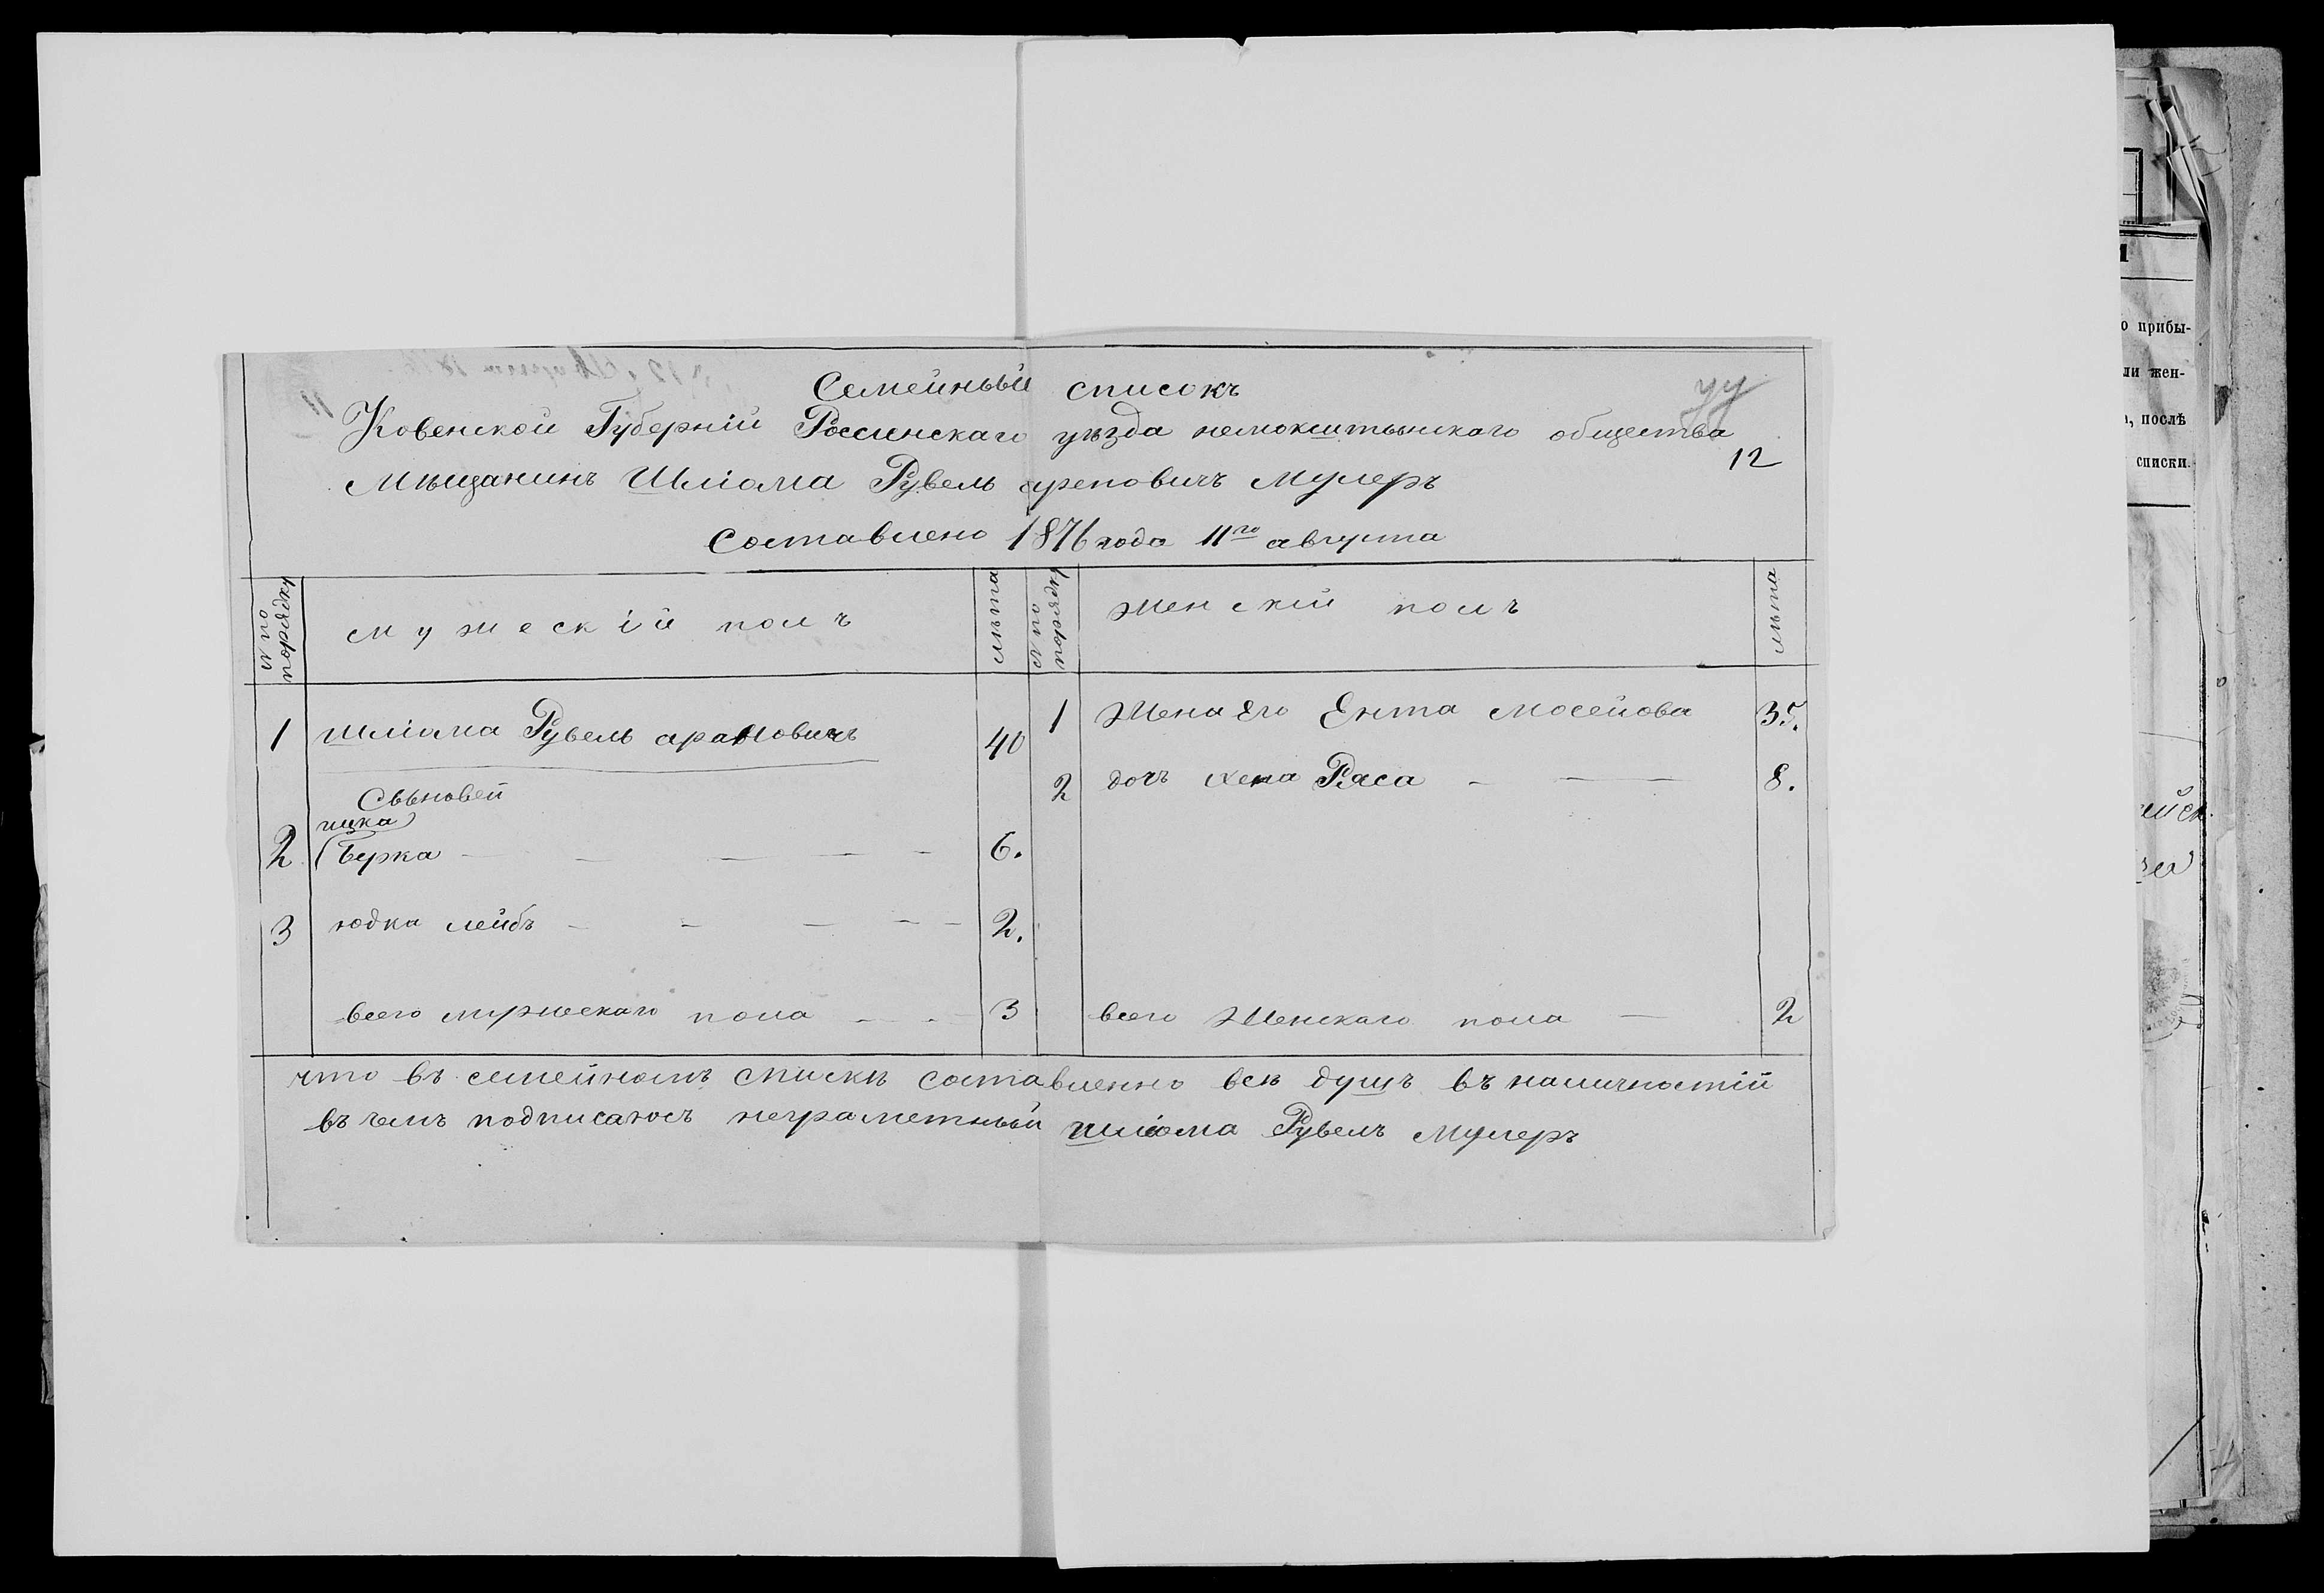 Семейный списокъ
Ковенской Губерніи Россіенскаго уѣзда немокштынскаго общества
12
Мѣщанинъ Шліома Рувель Мулеръ
Составлено 1876 года 11го августа
№ по порядку
мужескій полъ
лѣта
№ по порядку
женскій полъ
лѣта
1 шліома Рувель ароновичъ 40
1 Жена его Ента мосейова 35.
Сыновей
2 дочь хена Раса 8.
ицка
2 (Берка 6.
3 юдка лейбъ 2.
всего мужескаго пола 3
всего Женскаго пола 2
что въ семейномъ списки составленно всѣ душъ въ наличностій
въ чемъ подписаюсъ неграметный шліома Рувелъ Мулеръ
о прибы-
ли жен-
, послѣ
списки.